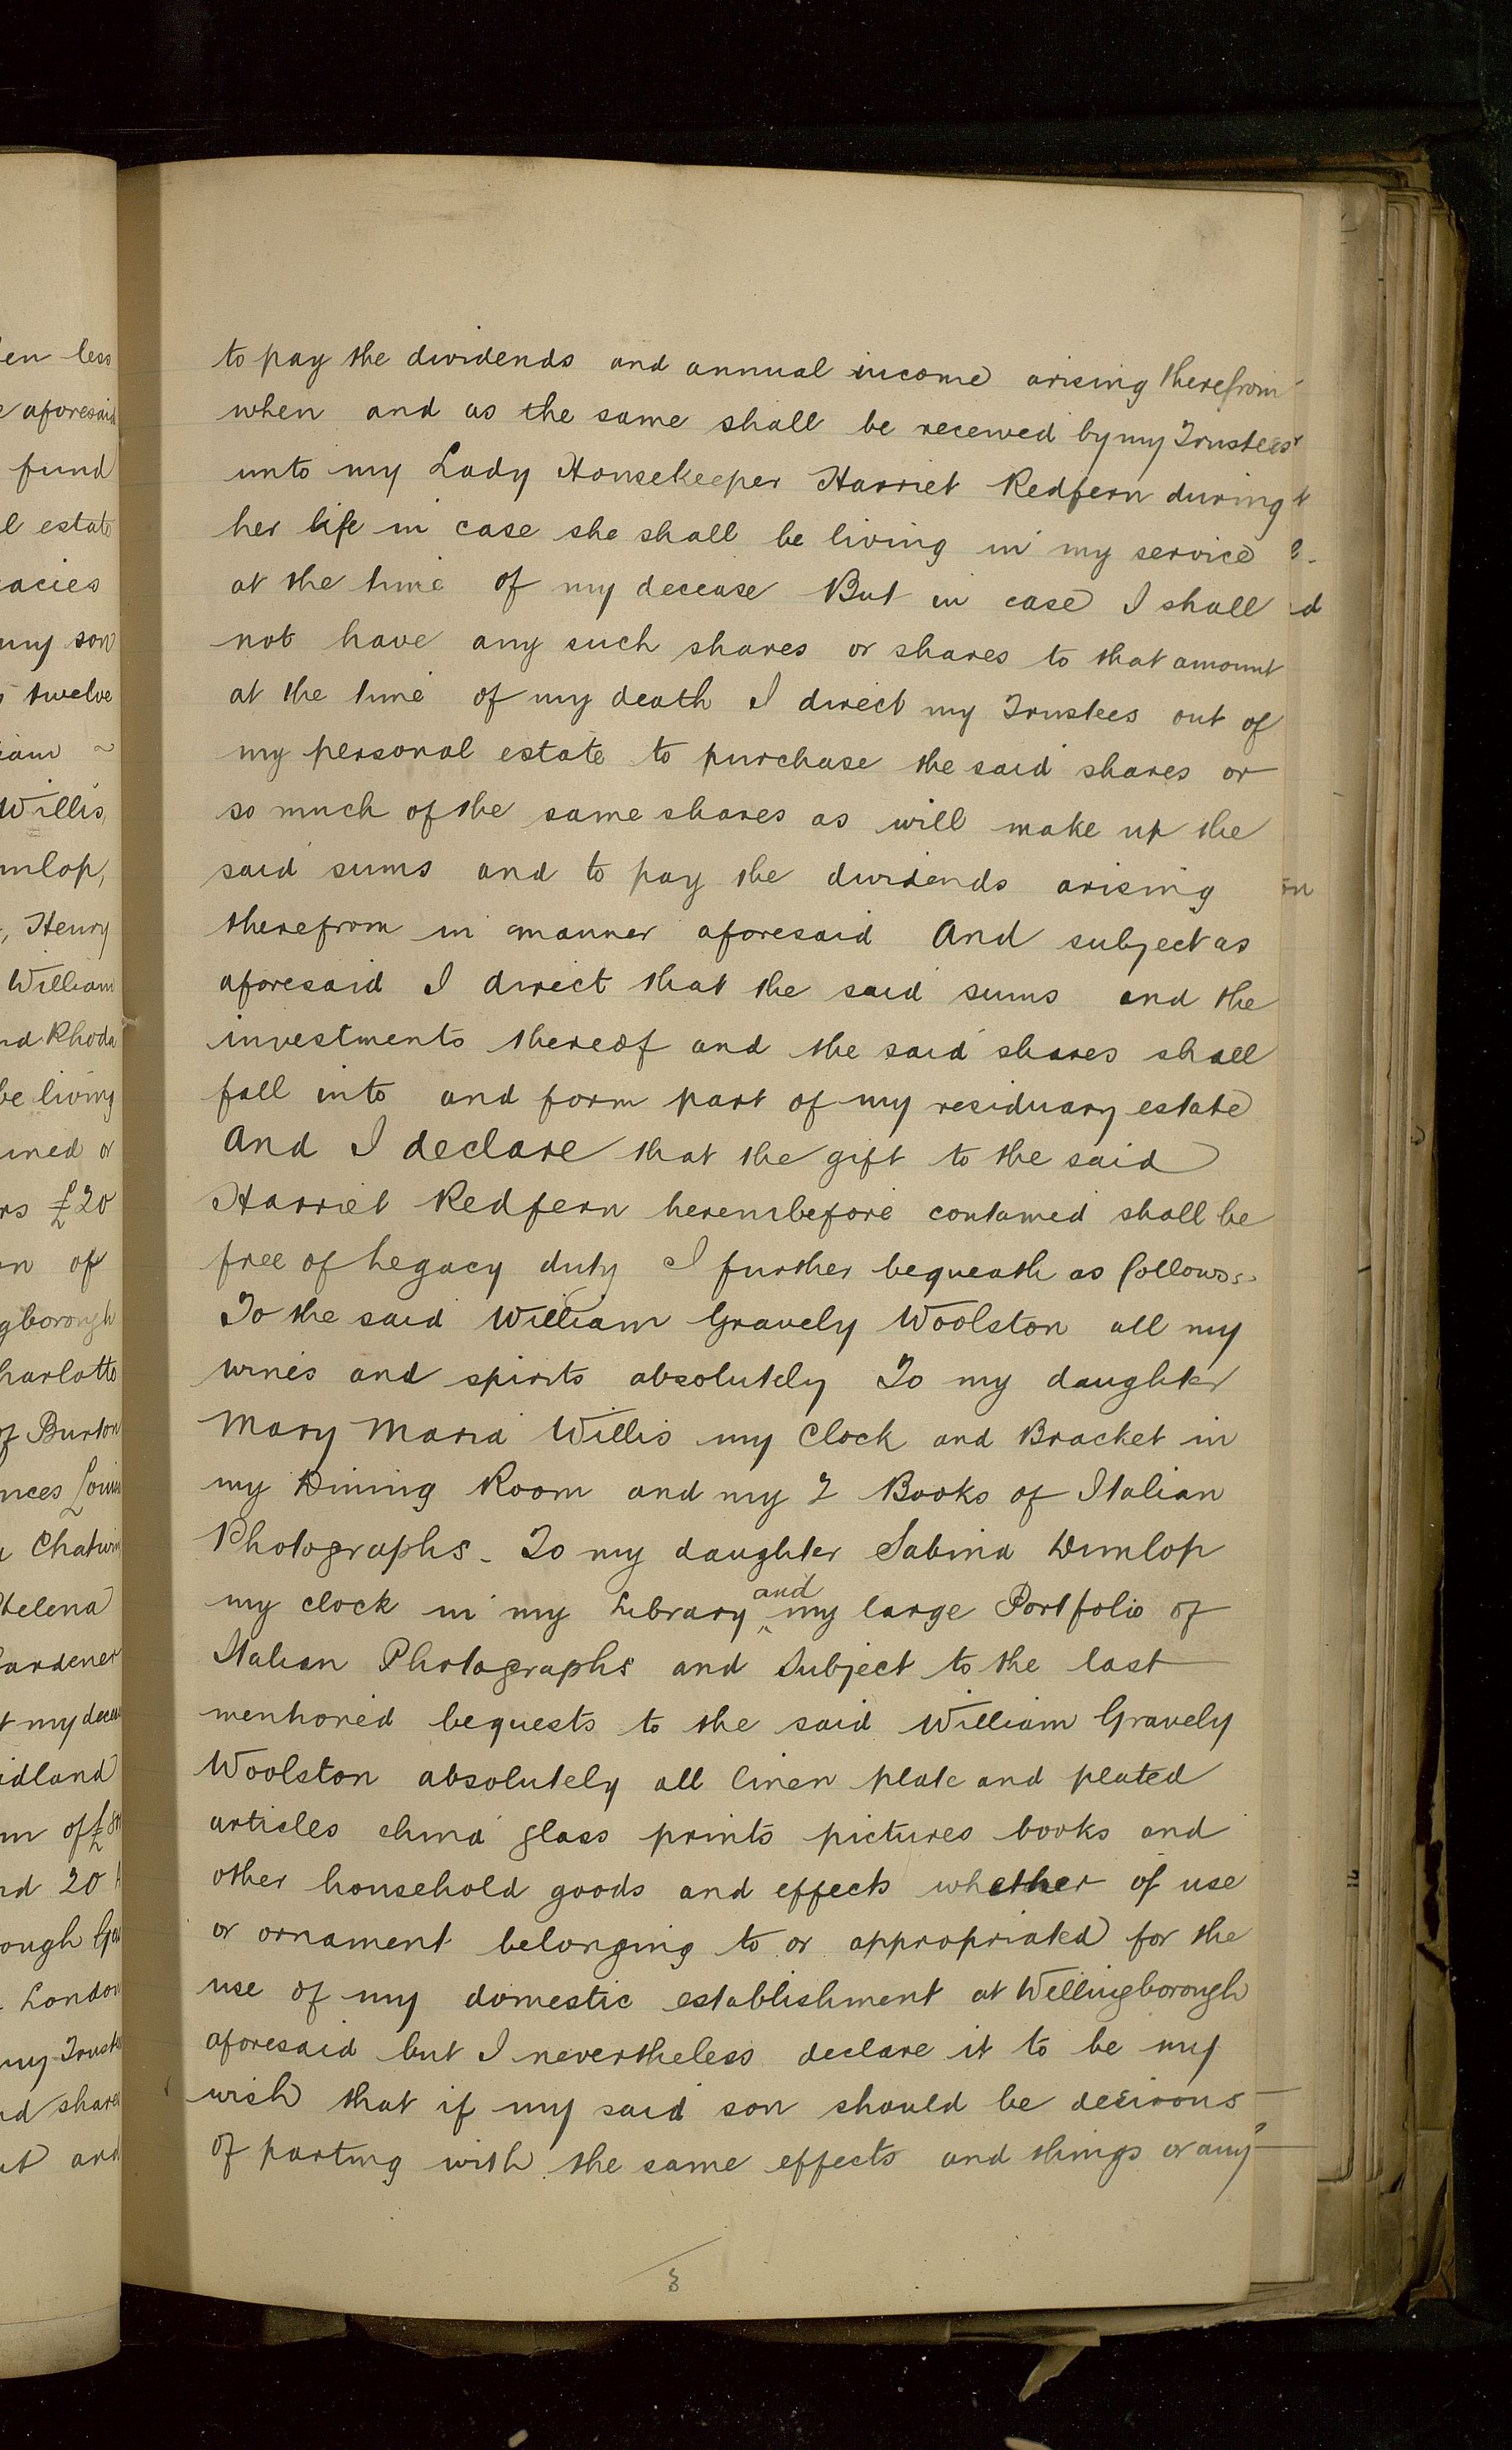 en less
aforesaid
fund
l estate
acies
my son
twelve
iam ~
Willis,
nlop,
, Henry
William
nd Rhoda
be living
ined or
rs £20
n of
gborough
harlotte
of Burton
nces Louis
Chatwin
Helena
ardener
t my decea
idland
m of £
nd 20
ough
London
my Trust
nd share
ut and
to pay the dividends and annual income arising therefrom
when and as the same shall be received by my Trustees
unto my Lady Housekeeper Harriet Redfern during
her life in case she shall be living in my service
at the time of my decease But in case I shall
not have any such shares or shares to that amount
at the time of my death I direct my Trustees out of
my personal estate to purchase the said shares or
so much of the same shares as will make up the
said sums and to pay the dividends arising
therefrom in manner aforesaid And subject as
aforesaid I direct that the said sums and the
investments thereof and the said shares shall
fall into and form part of my residuary estate
And I declare that the gift to the said
Harriet Redfern hereinbefore contained shall be
free of Legacy duty I further bequeath as follows:
To the said William Gravely Woolston all my
wines and spirits absolutely To my daughter
Mary Maria Willis my Clock and Bracket in
my Dining Room and my 2 Books of Italian
Photographs. To my daughter Sabina Dunlop
my clock in my Library and my large Portfolio of
Italian Photographs and Subject to the last
mentioned bequests to the said William Gravely
Woolston absolutely all linen plate and plated
articles china glass prints pictures books and
other household goods and effects whether of use
or ornament belonging to or appropriated for the
use of my domestic establishment at Wellingborough
aforesaid but I nevertheless declare it to be my
wish that if my said son should be desirous
of parting with the same effects and things or any
3